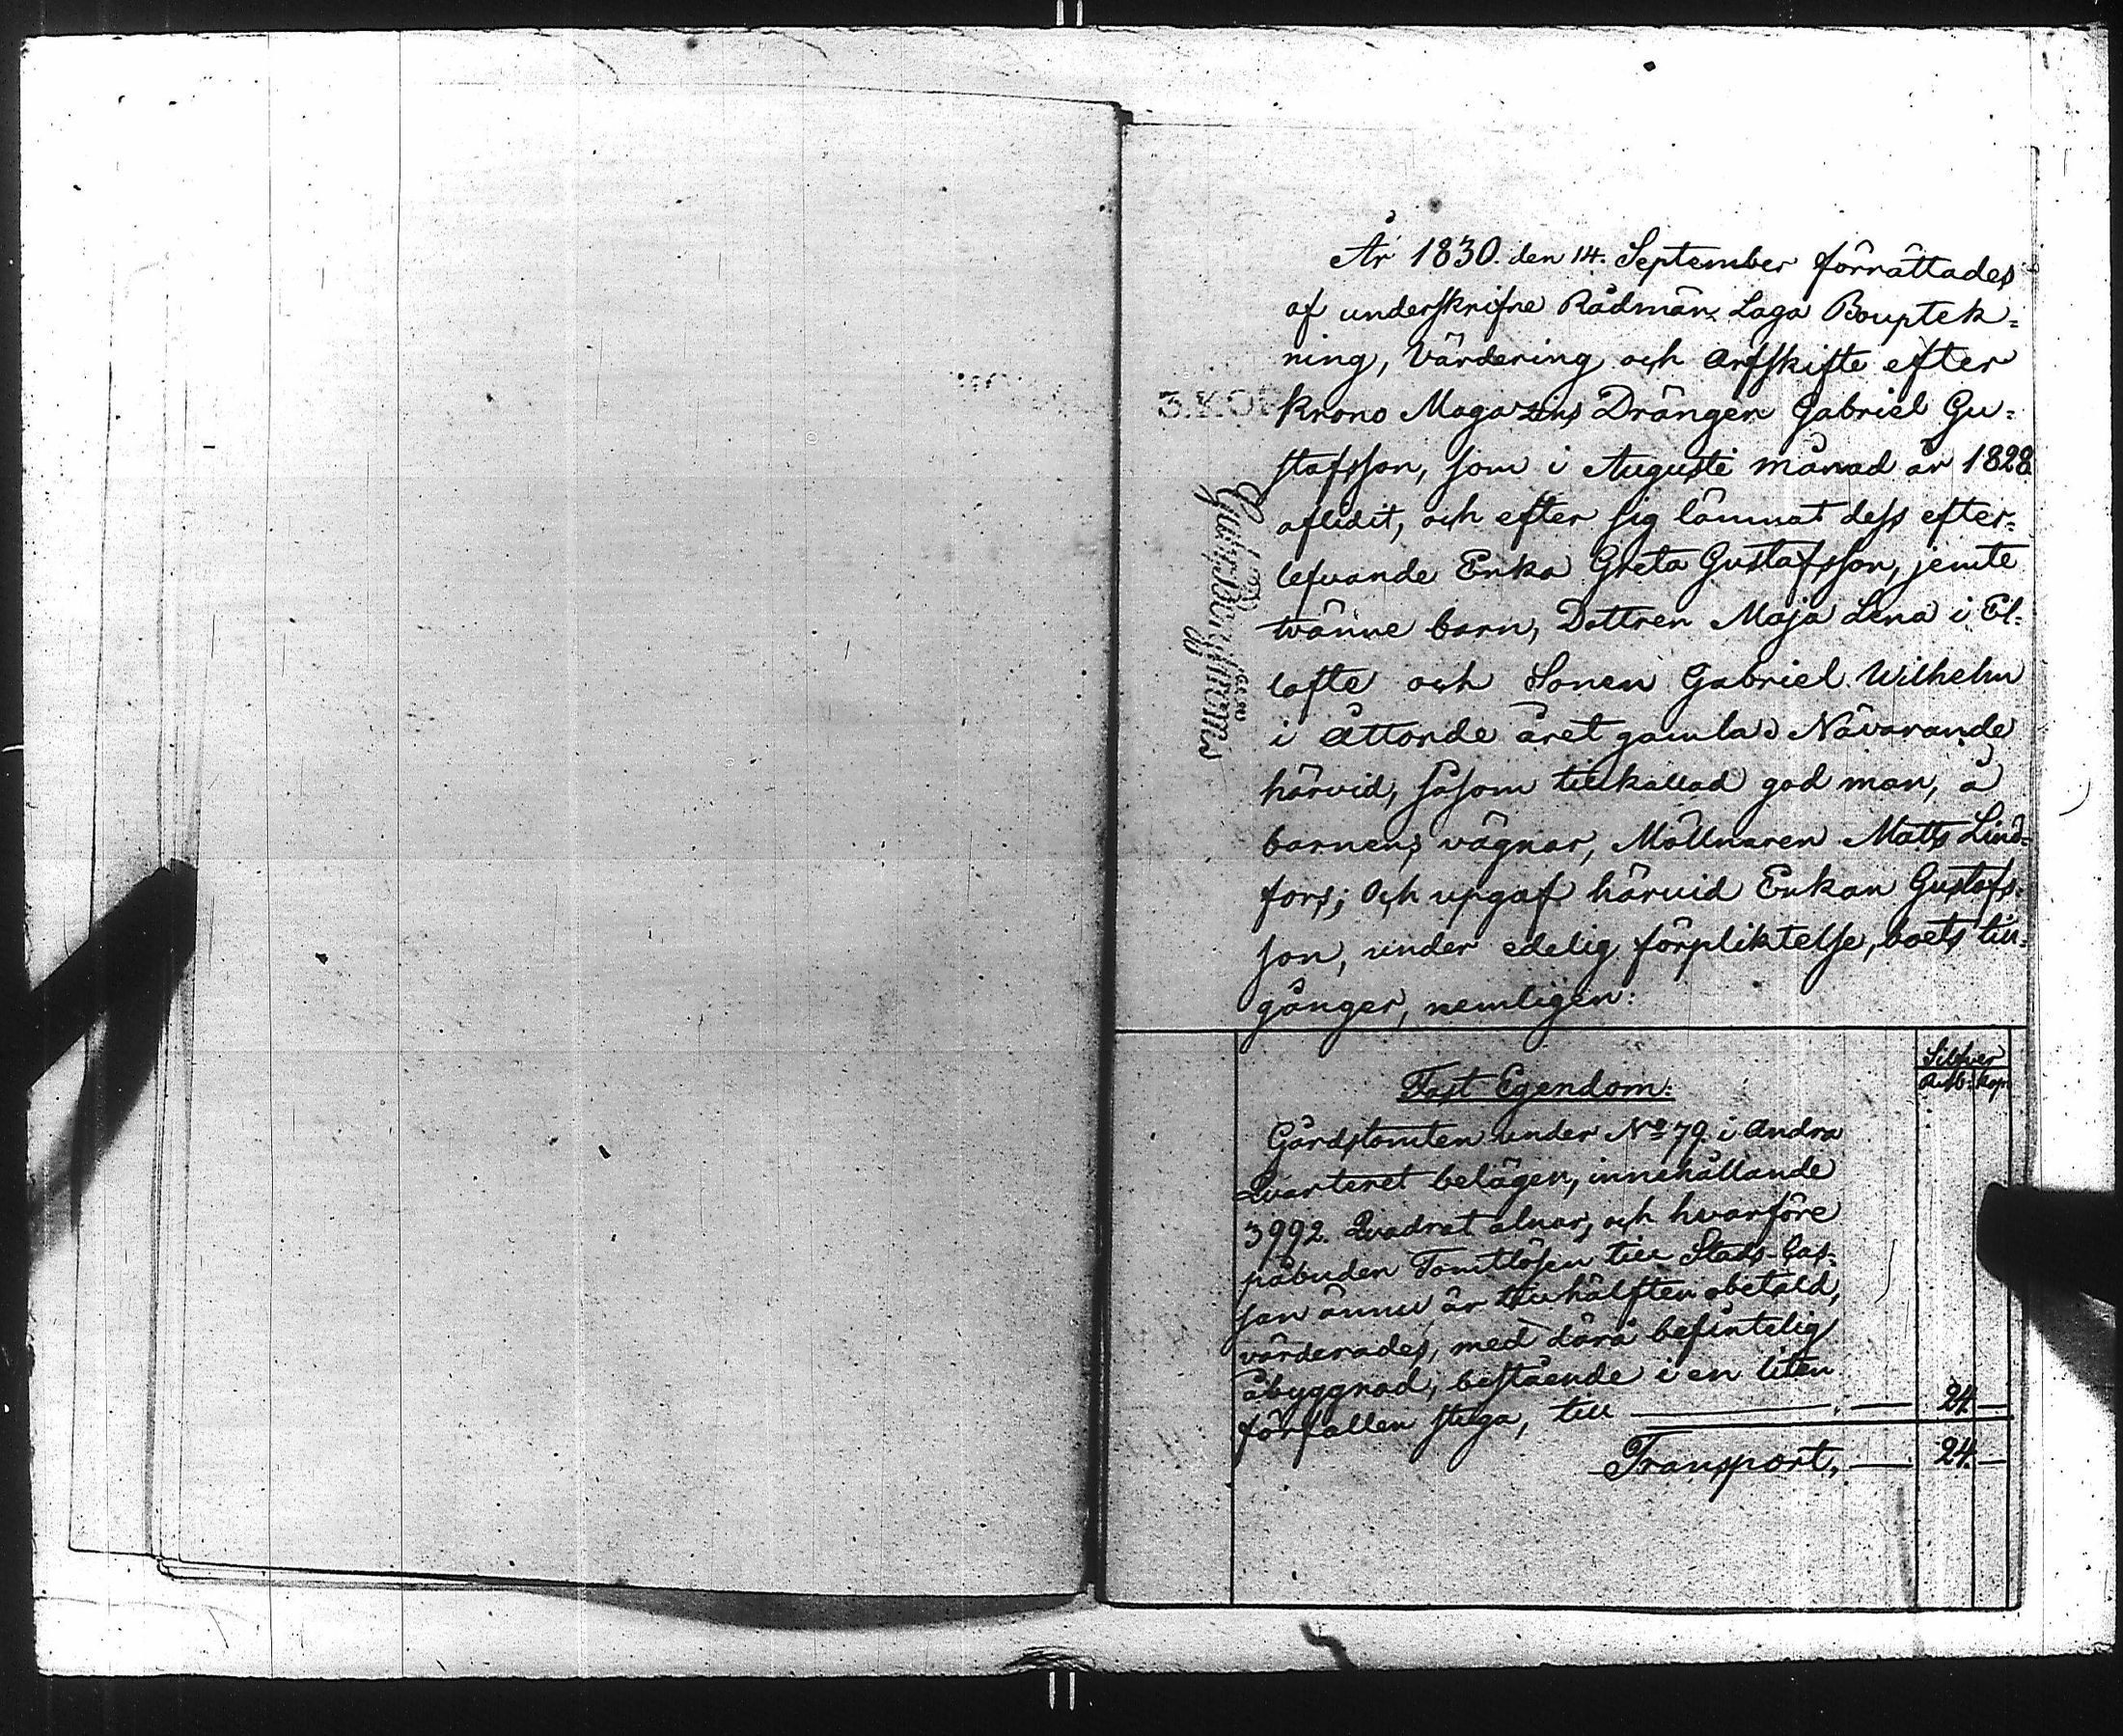 År 1830. den 14. September förrättades
af underskrifne Rådmän Laga Bouptek=
ning, Värdering och Arfskifte efter
3.KOP
Krono Magazins Drängen Gabriel Gu=
stafsson, som i Augusti månad år 1828.
aflidit, och efter sig lämnat dess efter=
lefvande Enka Greta Gustafsson, jemte
tvänne barn, Dottren Maja Lena i El=
lofte och Sonen Gabriel Wilhelm
i Åttonde året gamla. Närvarande
härvid, såsom tillkallad god man, å
barnens vägnar, Möllnaren Matts Lind=
fors; och upgaf härvid Enkan Gustafs=
son, under edelig förpliktelse, boets till=
gånger, nemligen:
Silfver
Rub. Kop.
Fast Egendom:
Gårdstomten under No 79 i Andra
Qvarteret belägen, innehållande
3992. Quadrat alnar, och hvarföre
påbuden Tomtlösen till Stads Cas=
san ännu är till hälften obetald,
värderades, med därå befintelig
åbyggnad, bestående i en liten
förfallen stuga, till 24. —
Transport, — 24. —